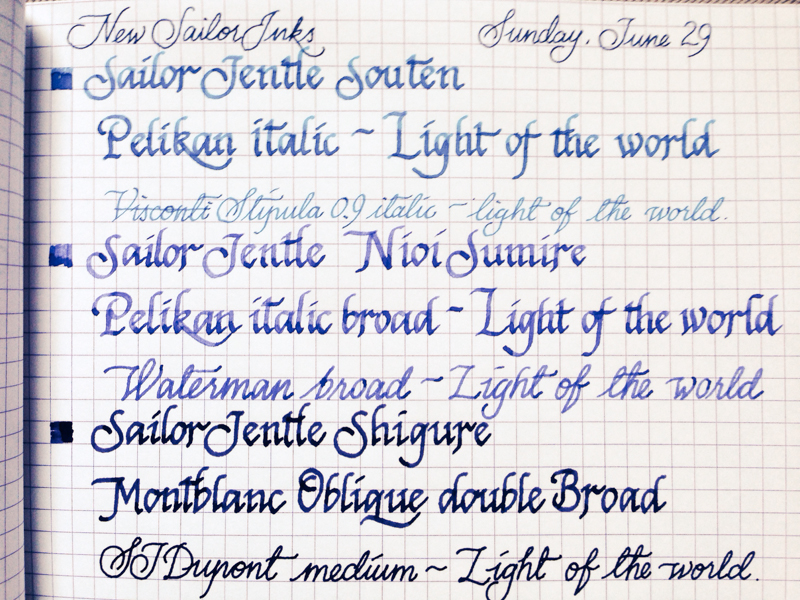 New Sailor Inks Sunday, June 29
Sailor Jentle Souten
Pelikan italic ~ Light of the world
Visconti Stipula 0.9 italic ~ light of the world.
Sailor Jentle Nioi Sumire
Pelikan italic broad ~ Light of the world
Waterman broad ~ Light of the world
Sailor Jentle Shigure
Montblanc Oblique double Broad
ST Dupont medium ~ Light of the world.